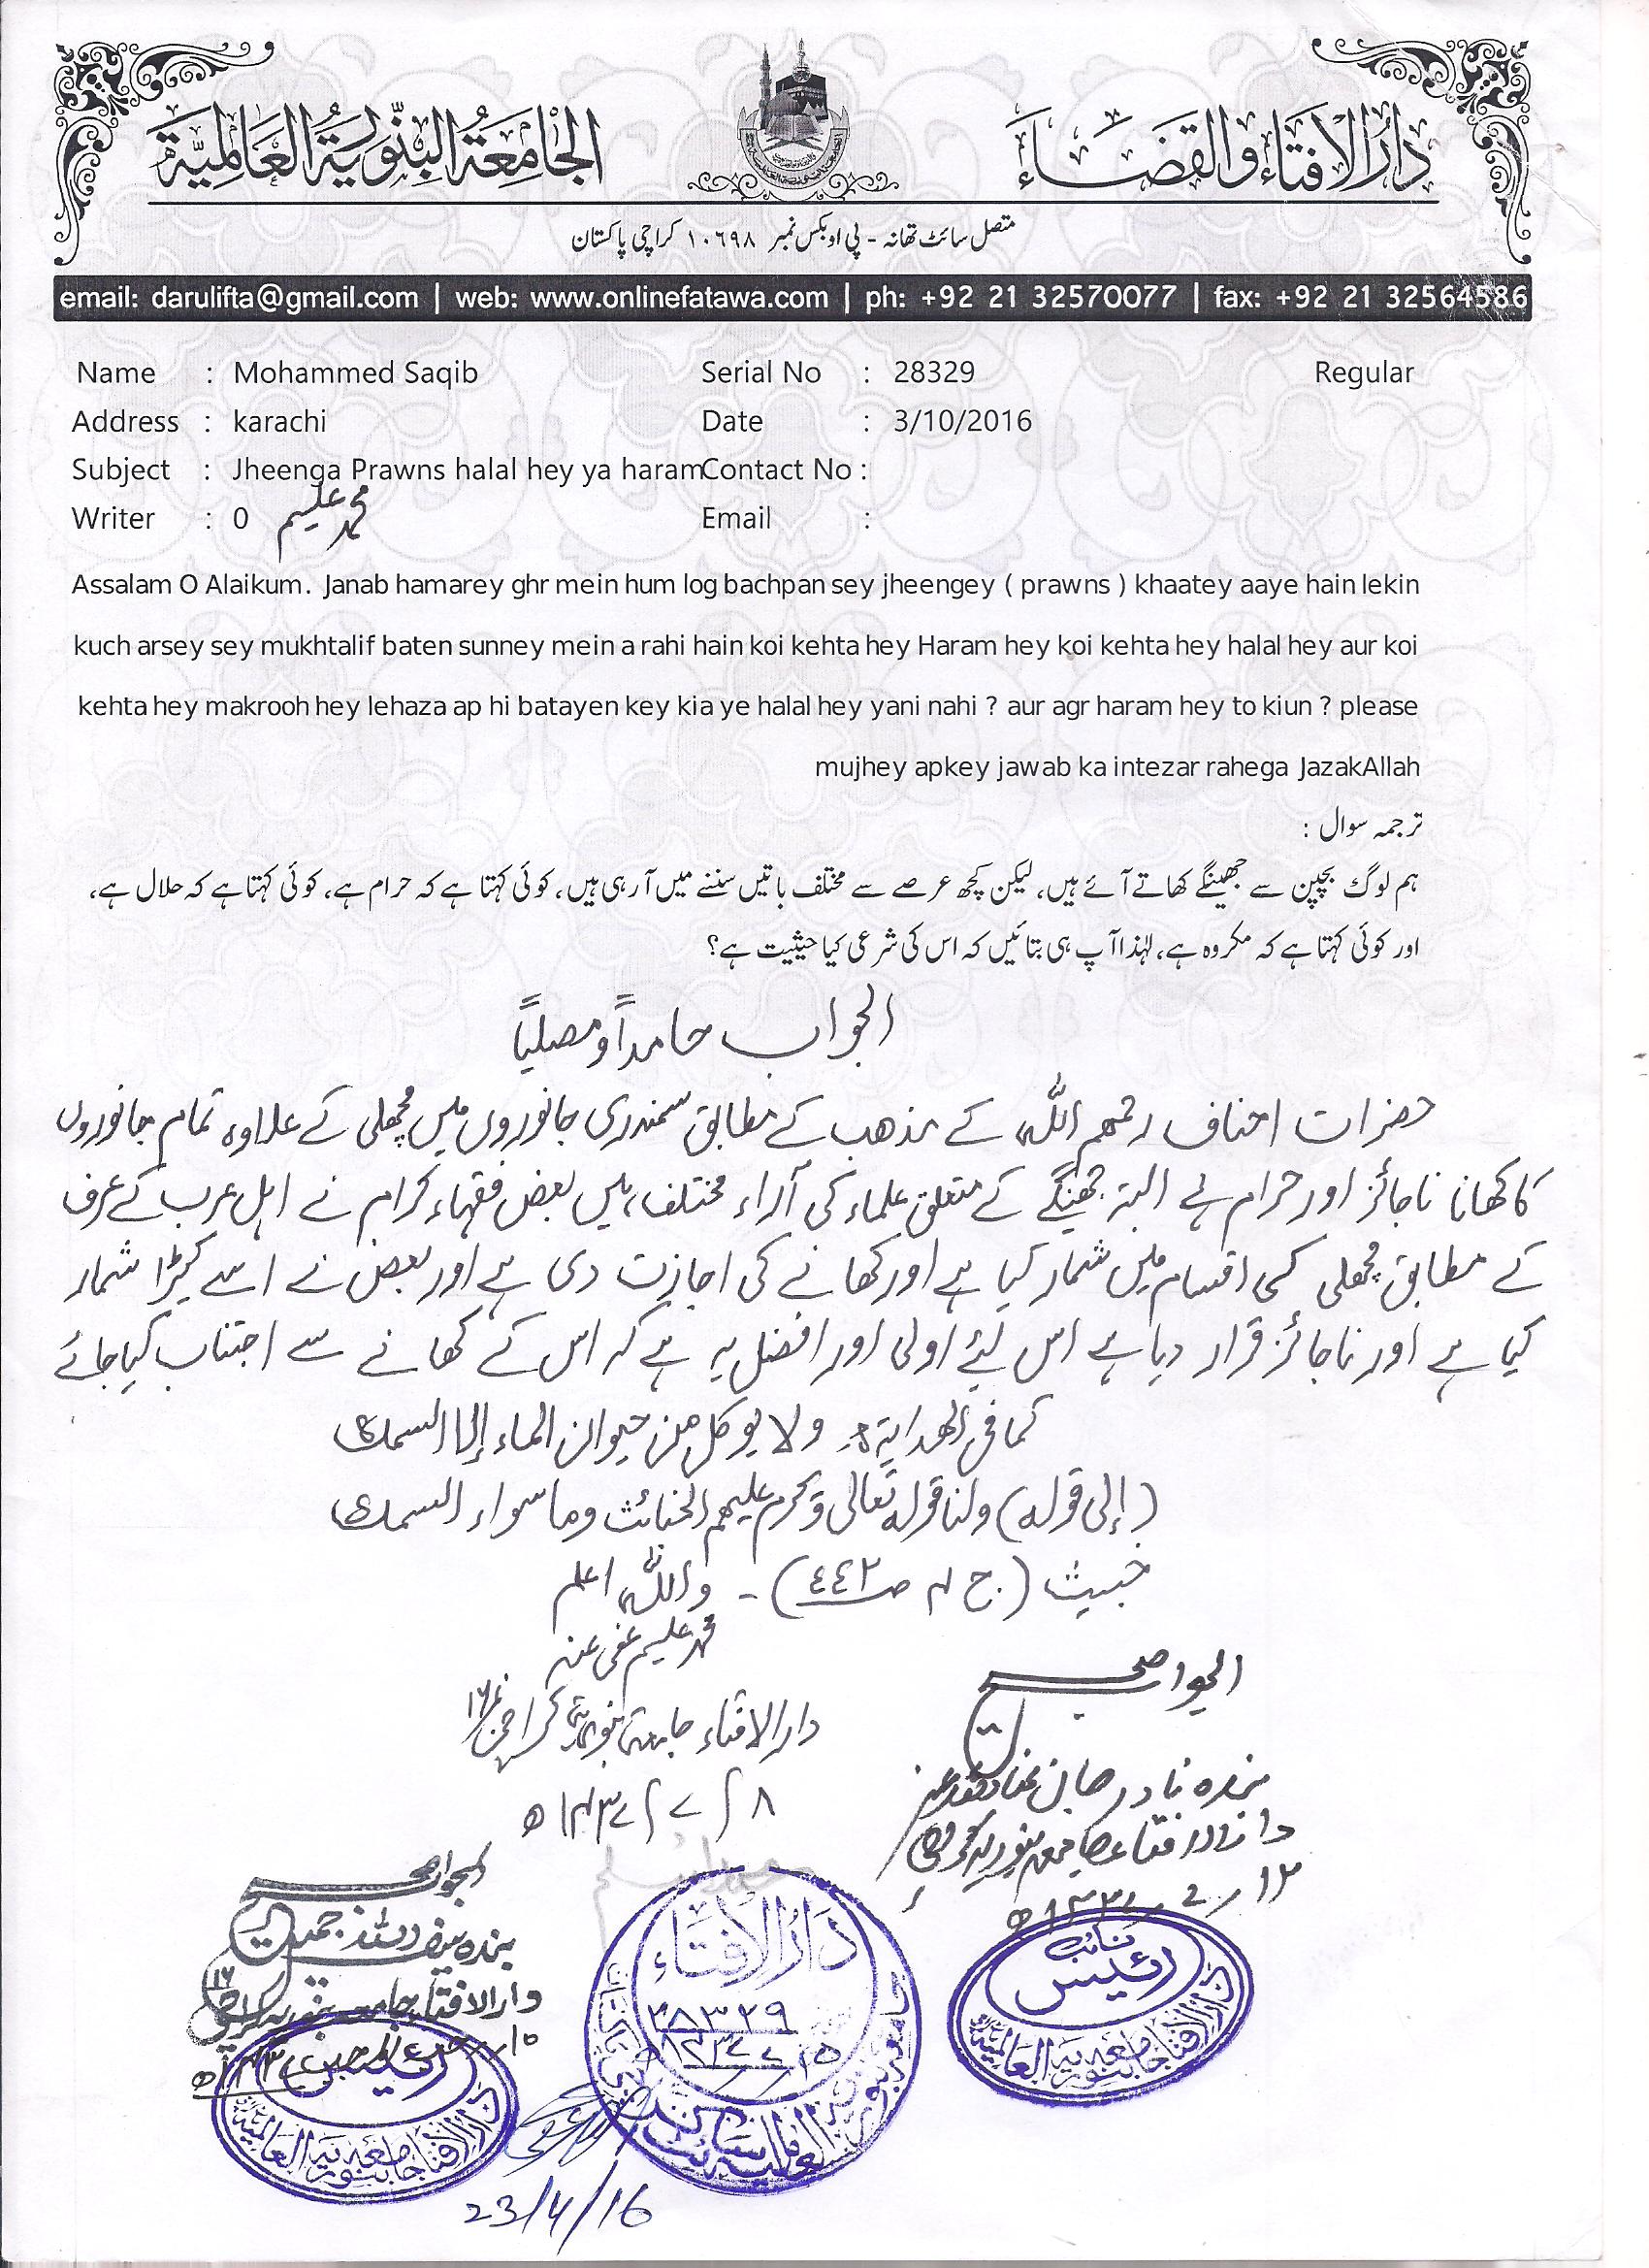 دار الافتاء والقضاء
الجامعة البنورية العالمية
متصل سائٹ تھانہ - پی او بکس نمبر ۱۰۶۹۸ کراچی پاکستان
email: darulifta@gmail.com | web: www.onlinefatawa.com | ph: +92 21 32570077 | fax: +92 21 32564586
Name : Mohammed Saqib Serial No : 28329 Regular
Address : karachi Date : 3/10/2016
Subject : Jheenga Prawns halal hey ya haram Contact No :
Writer : 0 محمد علیم Email :
Assalam O Alaikum. Janab hamarey ghr mein hum log bachpan sey jheengey ( prawns ) khaatey aaye hain lekin
kuch arsey sey mukhtalif baten sunney mein a rahi hain koi kehta hey Haram hey koi kehta hey halal hey aur koi
kehta hey makrooh hey lehaza ap hi batayen key kia ye halal hey yani nahi ? aur agr haram hey to kiun ? please
mujhey apkey jawab ka intezar rahega JazakAllah
ترجمہ سوال :
ہم لوگ بچپن سے جھینگے کھاتے آئے ہیں، لیکن کچھ عرصے سے مختلف باتیں سننے میں آرہی ہیں، کوئی کہتا ہے کہ حرام ہے، کوئی کہتا ہے کہ حلال ہے،
اور کوئی کہتا ہے کہ مکروہ ہے، لہٰذا آپ ہی بتائیں کہ اس کی شرعی کیا حیثیت ہے؟
الجواب حامداً ومصلیاً
حضرات احناف رحمہم اللہ کے مذھب کے مطابق سمندری جانوروں میں مچھلی کے علاوہ تمام جانوروں
کا کھانا ناجائز اور حرام ہے البتہ جھینگے کے متعلق علماء کی آراء مختلف ہیں بعض فقہاء کرام نے اہل عرب کے عرف
کے مطابق مچھلی کی اقسام میں شمار کیا ہے اور کھانے کی اجازت دی ہے اور بعض نے اسے کیڑا شمار
کیا ہے اور ناجائز قرار دیا ہے اس لیئے اولی اور افضل یہ ہے کہ اس کے کھانے سے اجتناب کیا جائے
کما فی الھدایة: ولا یوکل من حیوان الماء إلا السمک
(إلی قولہ) ولنا قولہ تعالی ویحرم علیھم الخبائث وما سواء السمک
خبیث (ج ۴ صـ ٤٤٢) ـ واللہ اعلم
محمد علیم عفی عنہ
دارالافتاء جامعہ بنوریہ کراچی نمبر ۱۶
۸ / ۷ / ۱۴۳۷ھ
الجواب صحیح
بندہ نادر جان
دارالافتاء جامعہ بنوریہ کراچی
۱۲ ۷ ۱۴۳۷ھ
الجواب صحیح
بندہ سیف اللہ جمیل
دارالافتاء جامعہ بنوریہ کراچی ۱۶
دار الافتاء
۲۸۳۲۹
نائب رئیس
دار الافتاء جامعہ بنوریہ العالمیہ
رئیس
دار الافتاء جامعہ بنوریہ العالمیہ
23/4/16